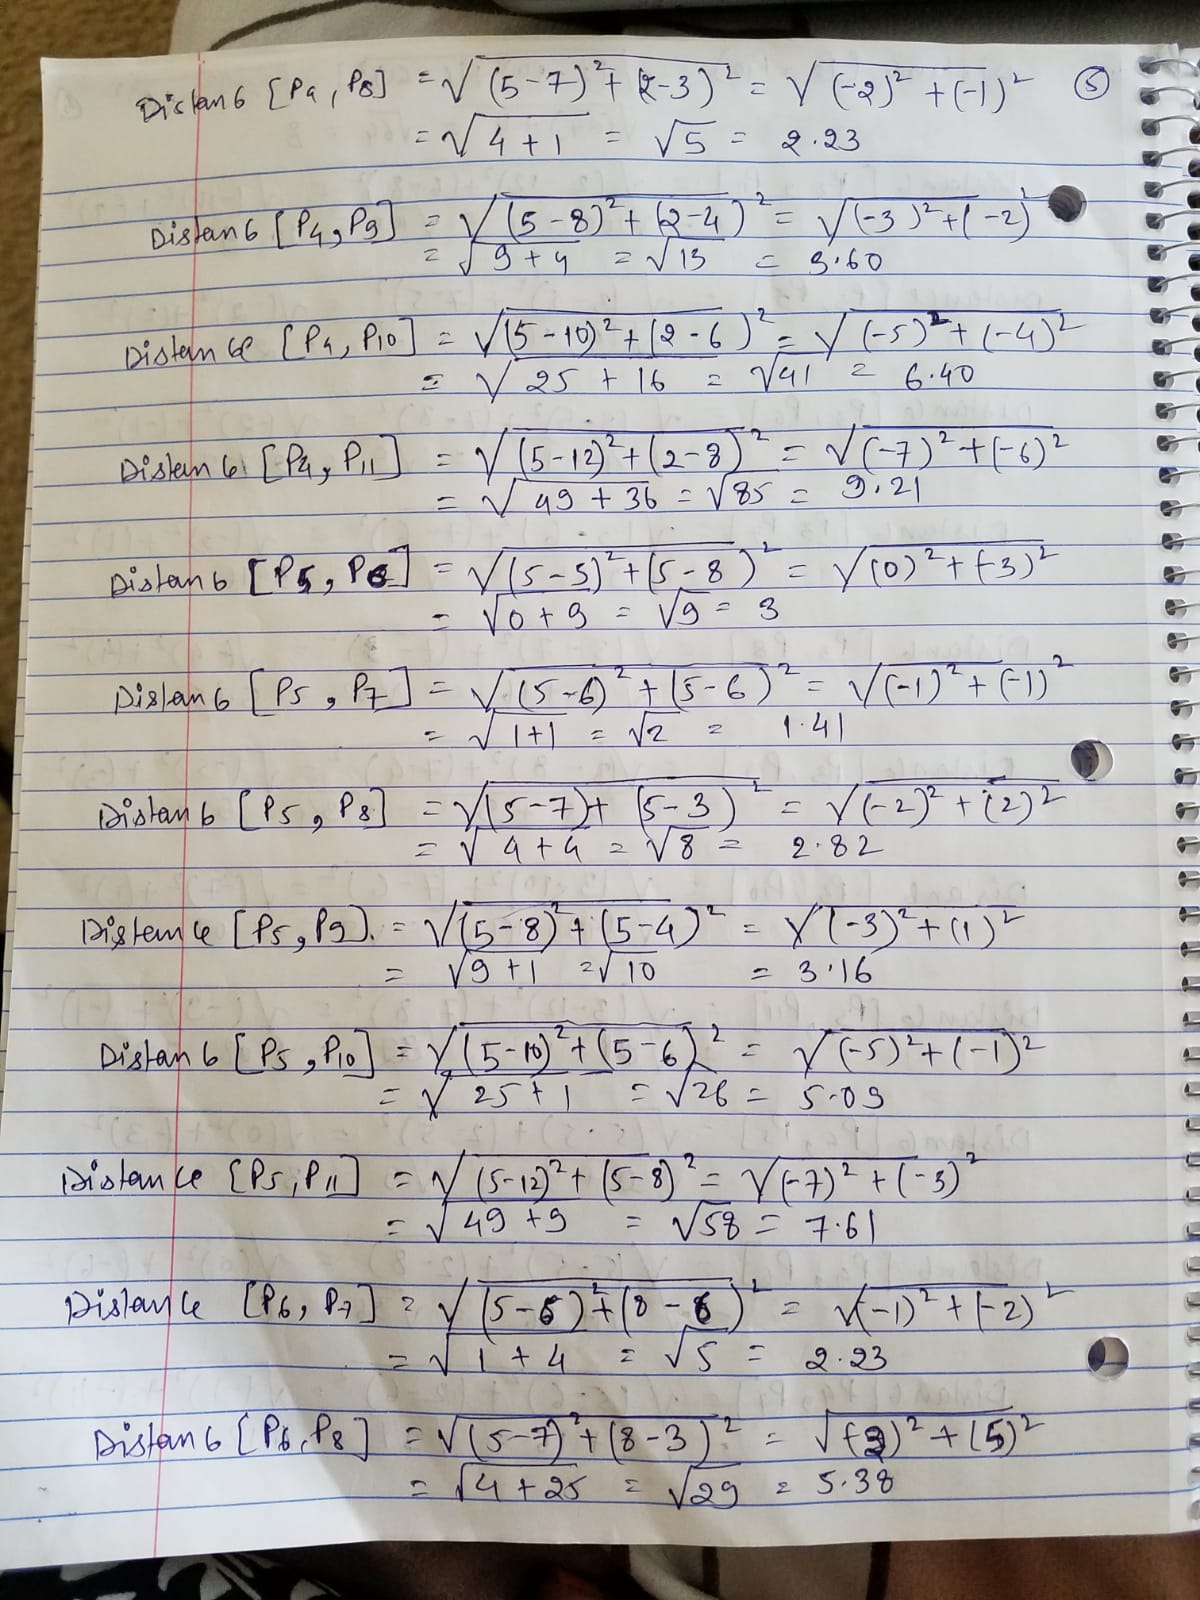 Distance [P4, P8] = √(5-7)² + (2-3)² = √(-2)² + (-1)² ⑤
= √4+1 = √5 = 2.23
Distance [P4, P9] = √(5-8)² + (2-4)² = √(-3)² + (-2)²
= √9+4 = √13 = 3.60
Distance [P4, P10] = √(5-10)² + (2-6)² = √(-5)² + (-4)²
= √25 + 16 = √41 = 6.40
Distance [P4, P11] = √(5-12)² + (2-8)² = √(-7)² + (-6)²
= √49 + 36 = √85 = 9.21
Distance [P5, P6] = √(5-5)² + (5-8)² = √(0)² + (-3)²
= √0+9 = √9 = 3
Distance [P5, P7] = √(5-6)² + (5-6)² = √(-1)² + (-1)²
= √1+1 = √2 = 1.41
Distance [P5, P8] = √(5-7) + (5-3)² = √(-2)² + (2)²
= √4+4 = √8 = 2.82
Distance [P5, P9]. = √(5-8)² + (5-4)² = √(-3)² + (1)²
= √9+1 = √10 = 3.16
Distance [P5, P10] = √(5-10)² + (5-6)² = √(-5)² + (-1)²
= √25+1 = √26 = 5.09
Distance [P5, P11] = √(5-12)² + (5-8)² = √(-7)² + (-3)²
= √49+9 = √58 = 7.61
Distance [P6, P7] = √(5-6)² + (8-6)² = √(-1)² + (-2)²
= √1+4 = √5 = 2.23
Distance [P6, P8] = √(5-7)² + (8-3)² = √(-2)² + (5)²
= √4+25 = √29 = 5.38